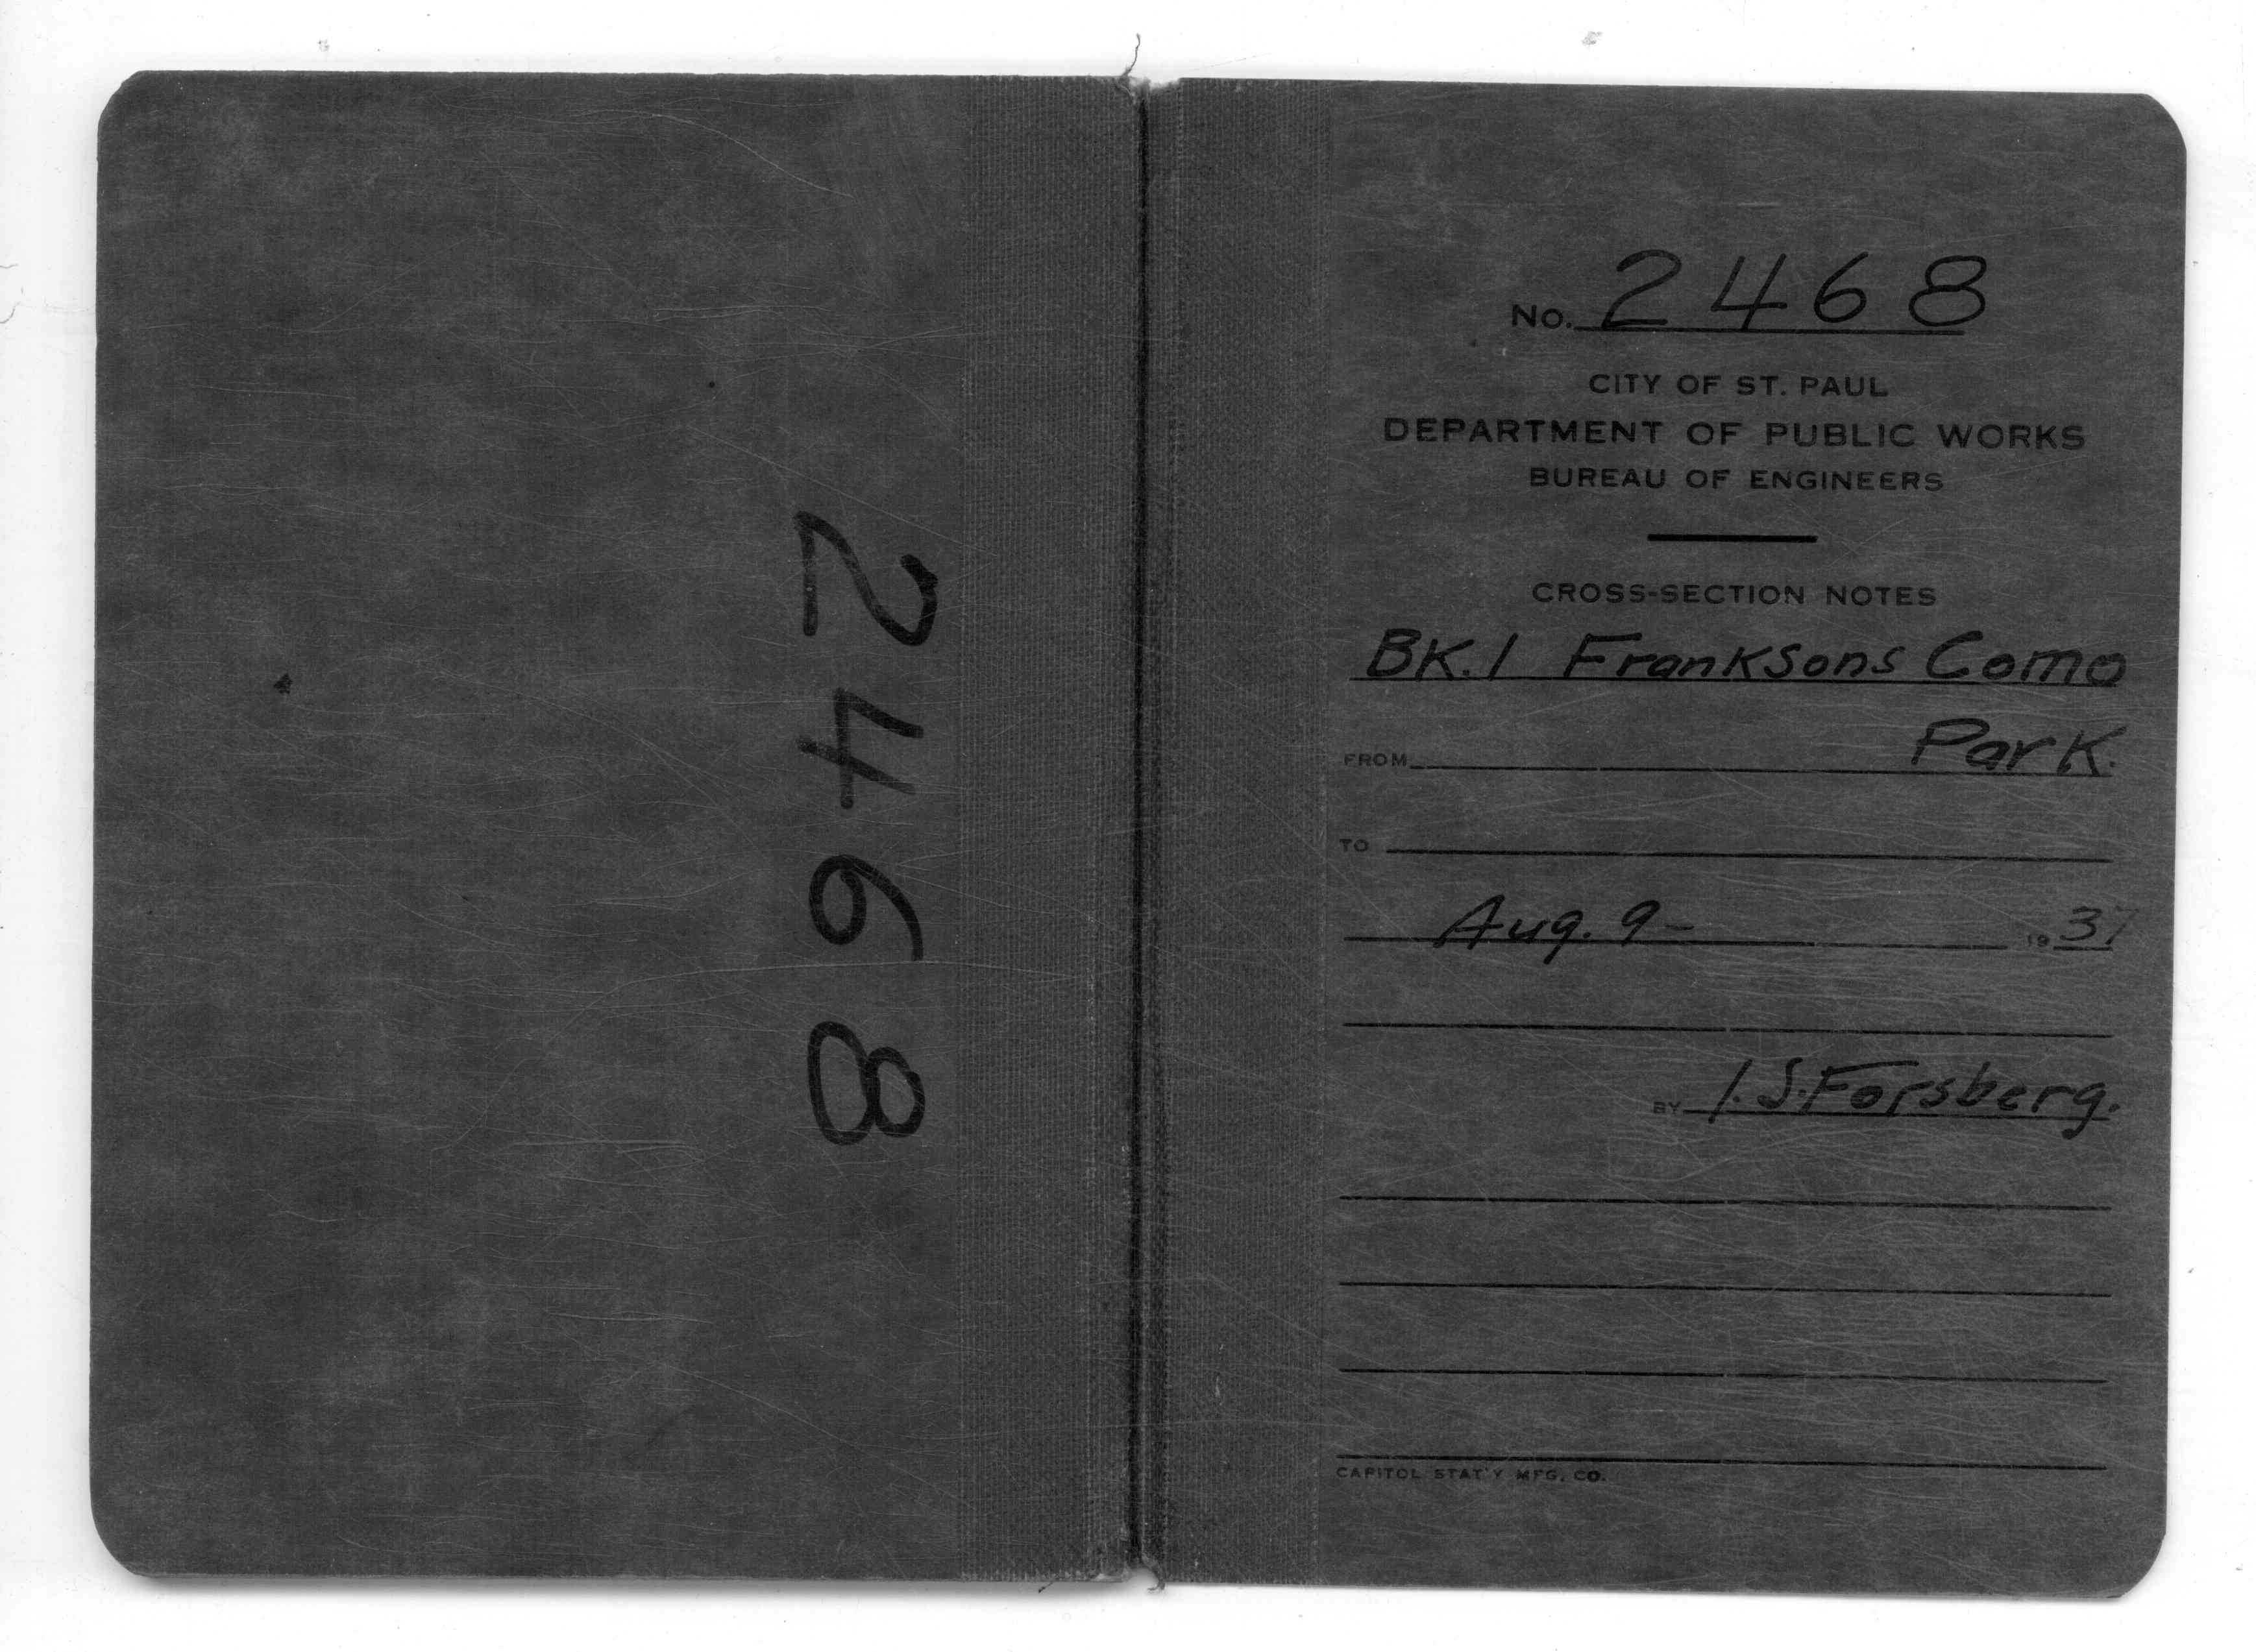 2468
No. 2468
CITY OF ST. PAUL
DEPARTMENT OF PUBLIC WORKS
BUREAU OF ENGINEERS
CROSS-SECTION NOTES
BK. 1 Franksons Como
FROM Park.
TO
Aug. 9- 1937
BY I. S. Forsberg.
CAPITOL STAT'Y MFG. CO.